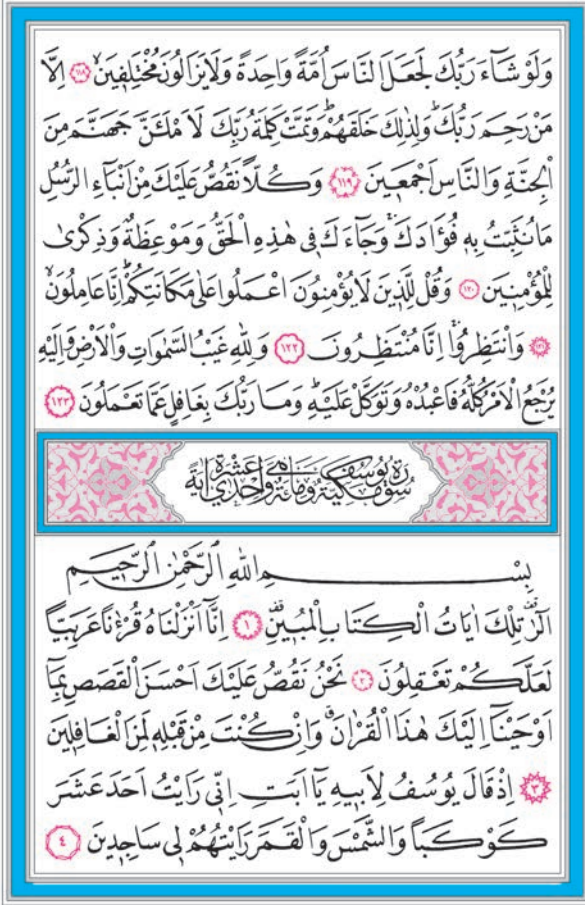 وَلَوْ شَٓاءَ رَبُّكَ لَجَعَلَ النَّاسَ اُمَّةً وَاحِدَةً وَلَا يَزَالُونَ مُخْتَلِف۪ينَۙ ﴿١١٨﴾ اِلَّا
مَنْ رَحِمَ رَبُّكَۜ وَلِذٰلِكَ خَلَقَهُمْۜ وَتَمَّتْ كَلِمَةُ رَبِّكَ لَاَمْلَـَٔنَّ جَهَنَّمَ مِنَ
الْجِنَّةِ وَالنَّاسِ اَجْمَع۪ينَ ﴿١١٩﴾ وَكُلًّا نَقُصُّ عَلَيْكَ مِنْ اَنْبَٓاءِ الرُّسُلِ
مَا نُثَبِّتُ بِه۪ فُؤٰادَكَۚ وَجَٓاءَكَ ف۪ي هٰذِهِ الْحَقُّ وَمَوْعِظَةٌ وَذِكْرٰى
لِلْمُؤْمِن۪ينَ ﴿١٢٠﴾ وَقُلْ لِلَّذ۪ينَ لَا يُؤْمِنُونَ اعْمَلُوا عَلٰى مَكَانَتِكُمْۜ اِنَّا عَامِلُونَۙ
﴿١٢١﴾ وَانْتَظِرُواۚ اِنَّا مُنْتَظِرُونَ ﴿١٢٢﴾ وَلِلّٰهِ غَيْبُ السَّمٰوَاتِ وَالْاَرْضِ وَاِلَيْهِ
يُرْجَعُ الْاَمْرُ كُلُّهُ فَاعْبُدْهُ وَتَوَكَّلْ عَلَيْهِۜ وَمَا رَبُّكَ بِغَافِلٍ عَمَّا تَعْمَلُونَ ﴿١٢٣﴾
سُورَةُ يُوسُفَ مَكِّيَّةٌ وَهِيَ مِائَةٌ وَاِحْدٰى عَشْرَةَ اٰيَةً
بِسْمِ اللّٰهِ الرَّحْمٰنِ الرَّح۪يمِ
الٓرٰ۠ تِلْكَ اٰيَاتُ الْكِتَابِ الْمُب۪ينِ۠ ﴿١﴾ اِنَّٓا اَنْزَلْنَاهُ قُرْءٰنًا عَرَبِيًّا
لَعَلَّكُمْ تَعْقِلُونَ ﴿٢﴾ نَحْنُ نَقُصُّ عَلَيْكَ اَحْسَنَ الْقَصَصِ بِمَٓا
اَوْحَيْنَٓا اِلَيْكَ هٰذَا الْقُرْاٰنَۗ وَاِنْ كُنْتَ مِنْ قَبْلِه۪ لَمِنَ الْغَافِل۪ينَ
﴿٣﴾ اِذْ قَالَ يُوسُفُ لِاَب۪يهِ يَٓا اَبَتِ اِنّ۪ي رَاَيْتُ اَحَدَ عَشَرَ
كَوْكَبًا وَالشَّمْسَ وَالْقَمَرَ رَاَيْتُهُمْ ل۪ي سَاجِد۪ينَ ﴿٤﴾